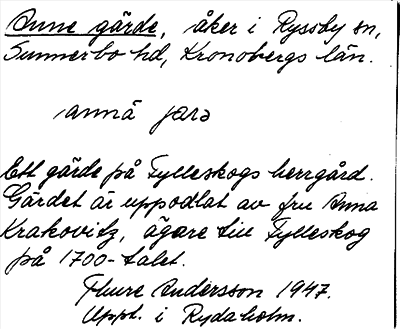 Anne gärde, åker i Ryssby sn,
Sunnerbo hd, Kronobergs län.
annä jarə
Ett gärde på Tylleskogs herrgård.
Gärdet är uppodlat av fru Anna
Krakovitz, ägare till Tylleskog
på 1700-talet.
Thure Andersson 1947.
Uppt. i Rydaholm.